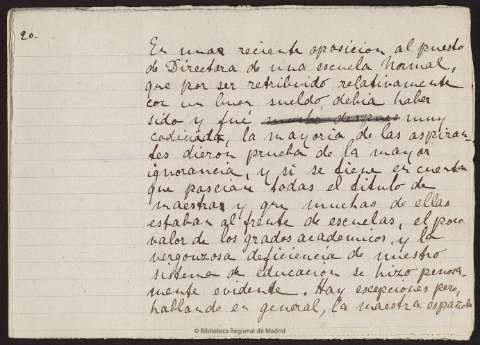 20.
En unas reciente oposicion, al puesto
de Directora de una escuela Normal,
que por ser retribuido relativamente
con un buen sueldo, debia haber
sido y fué muy
codiciada, la mayoria de las aspiran-
tes dieron prueba de la mayor
ignorancia, y si se tiene en cuenta
que poseian todas el titulo de
maestras y que muchas de ellas
estaban al frente de escuelas, el poco
valor de los grados academicos, y la
vergonzosa deficiencia de nuestro
sistema de educacion se hizo penosa-
mente evidente. Hay excepciones pero,
hablando en general, la maestra española
© Biblioteca Regional de Madrid